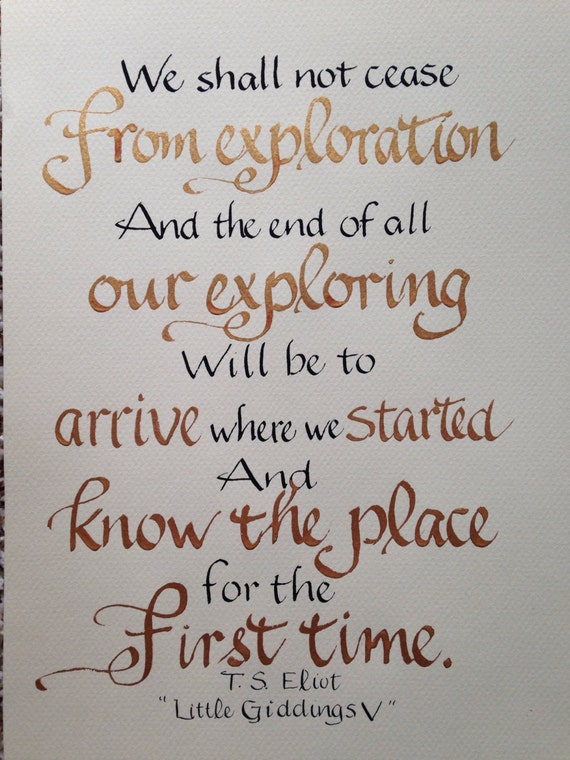 We shall not cease
From exploration
And the end of all
our exploring
Will be to
arrive where we started
And
know the place
for the
First time.
T. S. Eliot
"Little Giddings V"